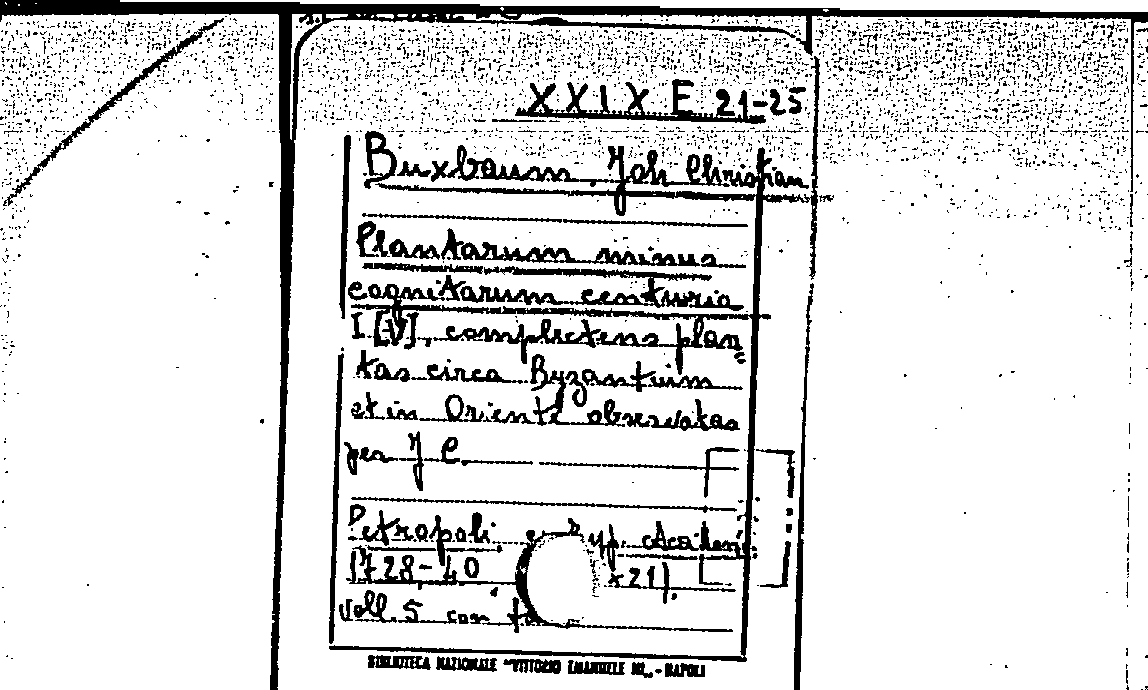 XXIX E 21-25
Buxbaum Joh Christian
Plantarum minus
cognitarum centuria
I [V], complectens plan
tas circa Byzantium
et in Oriente observatas
per J C.
Petropoli, Typ. Academ:
1728-40 x21).
voll. 5 con
BIBLIOTECA NAZIONALE "VITTORIO EMANUELE III„ - NAPOLI